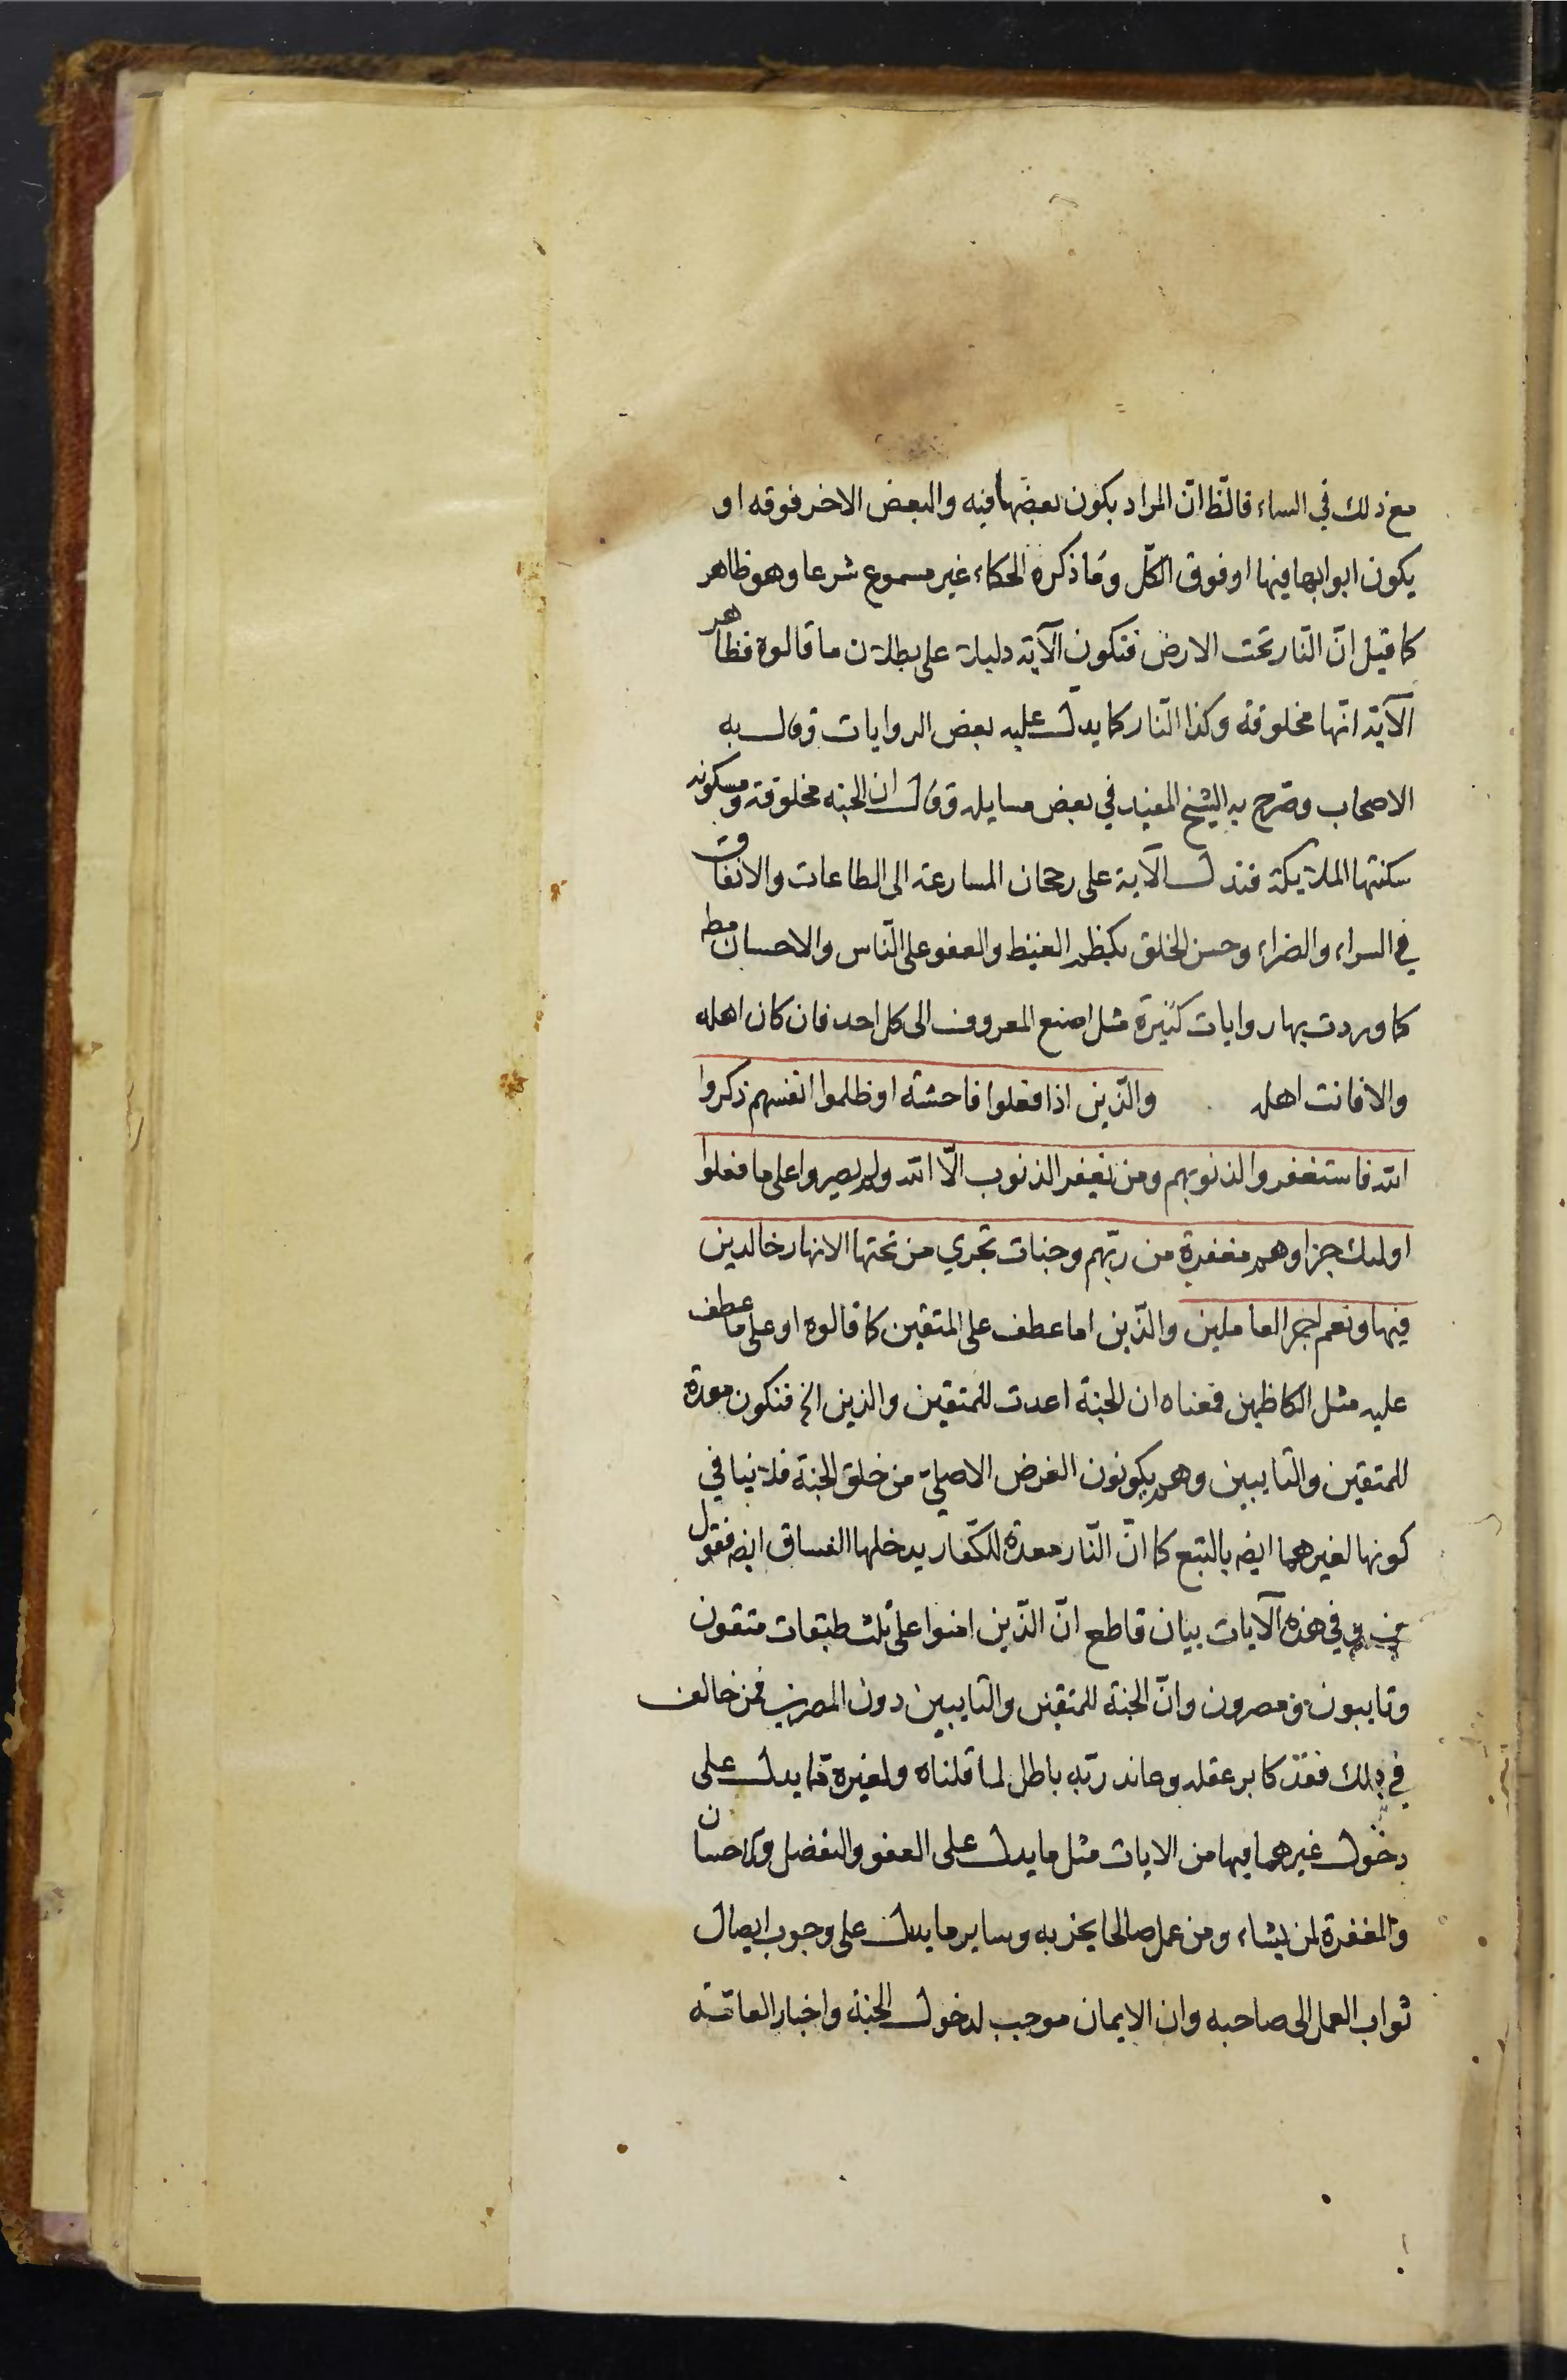 مع ذلك في السماء فالظ انّ المراد بكون بعضها فيه والبعض الاخر فوقه او
يكون ابوابها فيها او فوق الكلّ وما ذكره الحكماء غير مسموع شرعا وهو ظاهر
كما قيل انّ النّار تحت الارض فتكون الآية دليلا على بطلان ما قالوه فظاهر
الآية انّها مخلوقة وكذا النّار كما يدلّ عليه بعض الروايات وقال به
الاصحاب وصرّح به الشيخ المفيد في بعض مسايله وقال ان الجنه مخلوقة ومسكونه
سكنتها الملائكة فتدل الآية على رجحان المسارعة الى الطاعات والانفاق
في السراء والضراء وحسن الخلق بكظم الغيظ والعفو على النّاس والاحسان مطه
كما وردت بها روايات كثيرة مثل اصنع المعروف الى كل احد فان كان اهله
والا فانت اهله والّذين اذا فعلوا فاحشة او ظلموا انفسهم ذكروا
الله فاستغفروا لذنوبهم ومن يغفر الذنوب الّا الله ولم يصروا على ما فعلوا
اولىك جزاوهم مغفرة من ربّهم وجنات تجري من تحتها الانهار خالدين
فيها ونعم اجر العاملين والّذين اما عطف على المتقين كما قالوه او على ما عطف
عليه مثل الكاظمين فمعناه ان الجنة اعدت للمتقين والذين الخ فتكون معدة
للمتقين والتايبين وهم يكونون الغرض الاصليّ من خلق الجنة فلا ينافي
كونها لغيرهما ايضه بالتبع كما انّ النّار معدة للكفّار يدخلها الفساق ايضه فقول
في هذه الآيات بيان قاطع انّ الّذين امنوا على ثلث طبقات متقون
وتايبون ومصرون وانّ الجنة للمتقين والتايبين دون المصرين فمن خالف
في ذلك فقد كابر عقله وعاند ربّه باطل لما قلناه ولغيره مما يدل على
دخول غيرهما فيها من الايات مثل ما يدل على العفو والتفضل والاحسان
والمغفرة لمن يشاء ومن عمل صالحا يجز به وساير ما يدل على وجوب ايصال
ثواب العمل الى صاحبه وان الايمان موجب لدخول الجنة واخبار العامّة